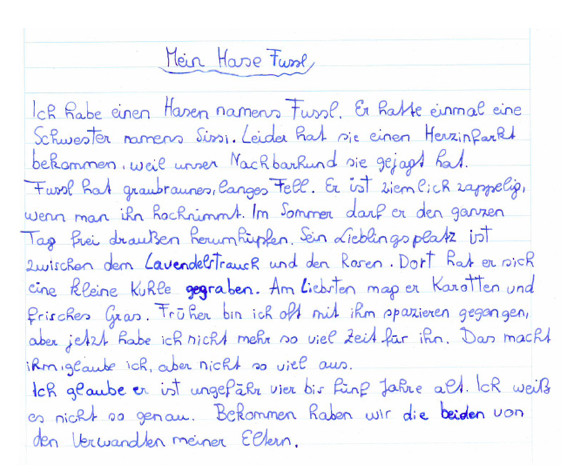 Mein Hase Fussl
Ich habe einen Hasen namens Fussl. Er hatte einmal eine
Schwester namens Sissi. Leider hat sie einen Herzinfarkt
bekommen, weil unser Nachbarhund sie gejagt hat.
Fussl hat graubraunes, langes Fell. Er ist ziemlich zappelig,
wenn man ihn hochnimmt. Im Sommer darf er den ganzen
Tag frei draußen herumhüpfen. Sein Lieblingsplatz ist
zwischen dem Lavendelstrauch und den Rosen. Dort hat er sich
eine kleine Kuhle gegraben. Am Liebsten mag er Karotten und
frisches Gras. Früher bin ich oft mit ihm spazieren gegangen,
aber jetzt habe ich nicht mehr so viel Zeit für ihn. Das macht
ihm, glaube ich, aber nicht so viel aus.
Ich glaube er ist ungefähr vier bis fünf Jahre alt. Ich weiß
es nicht so genau. Bekommen haben wir die beiden von
den Verwandten meiner Eltern.